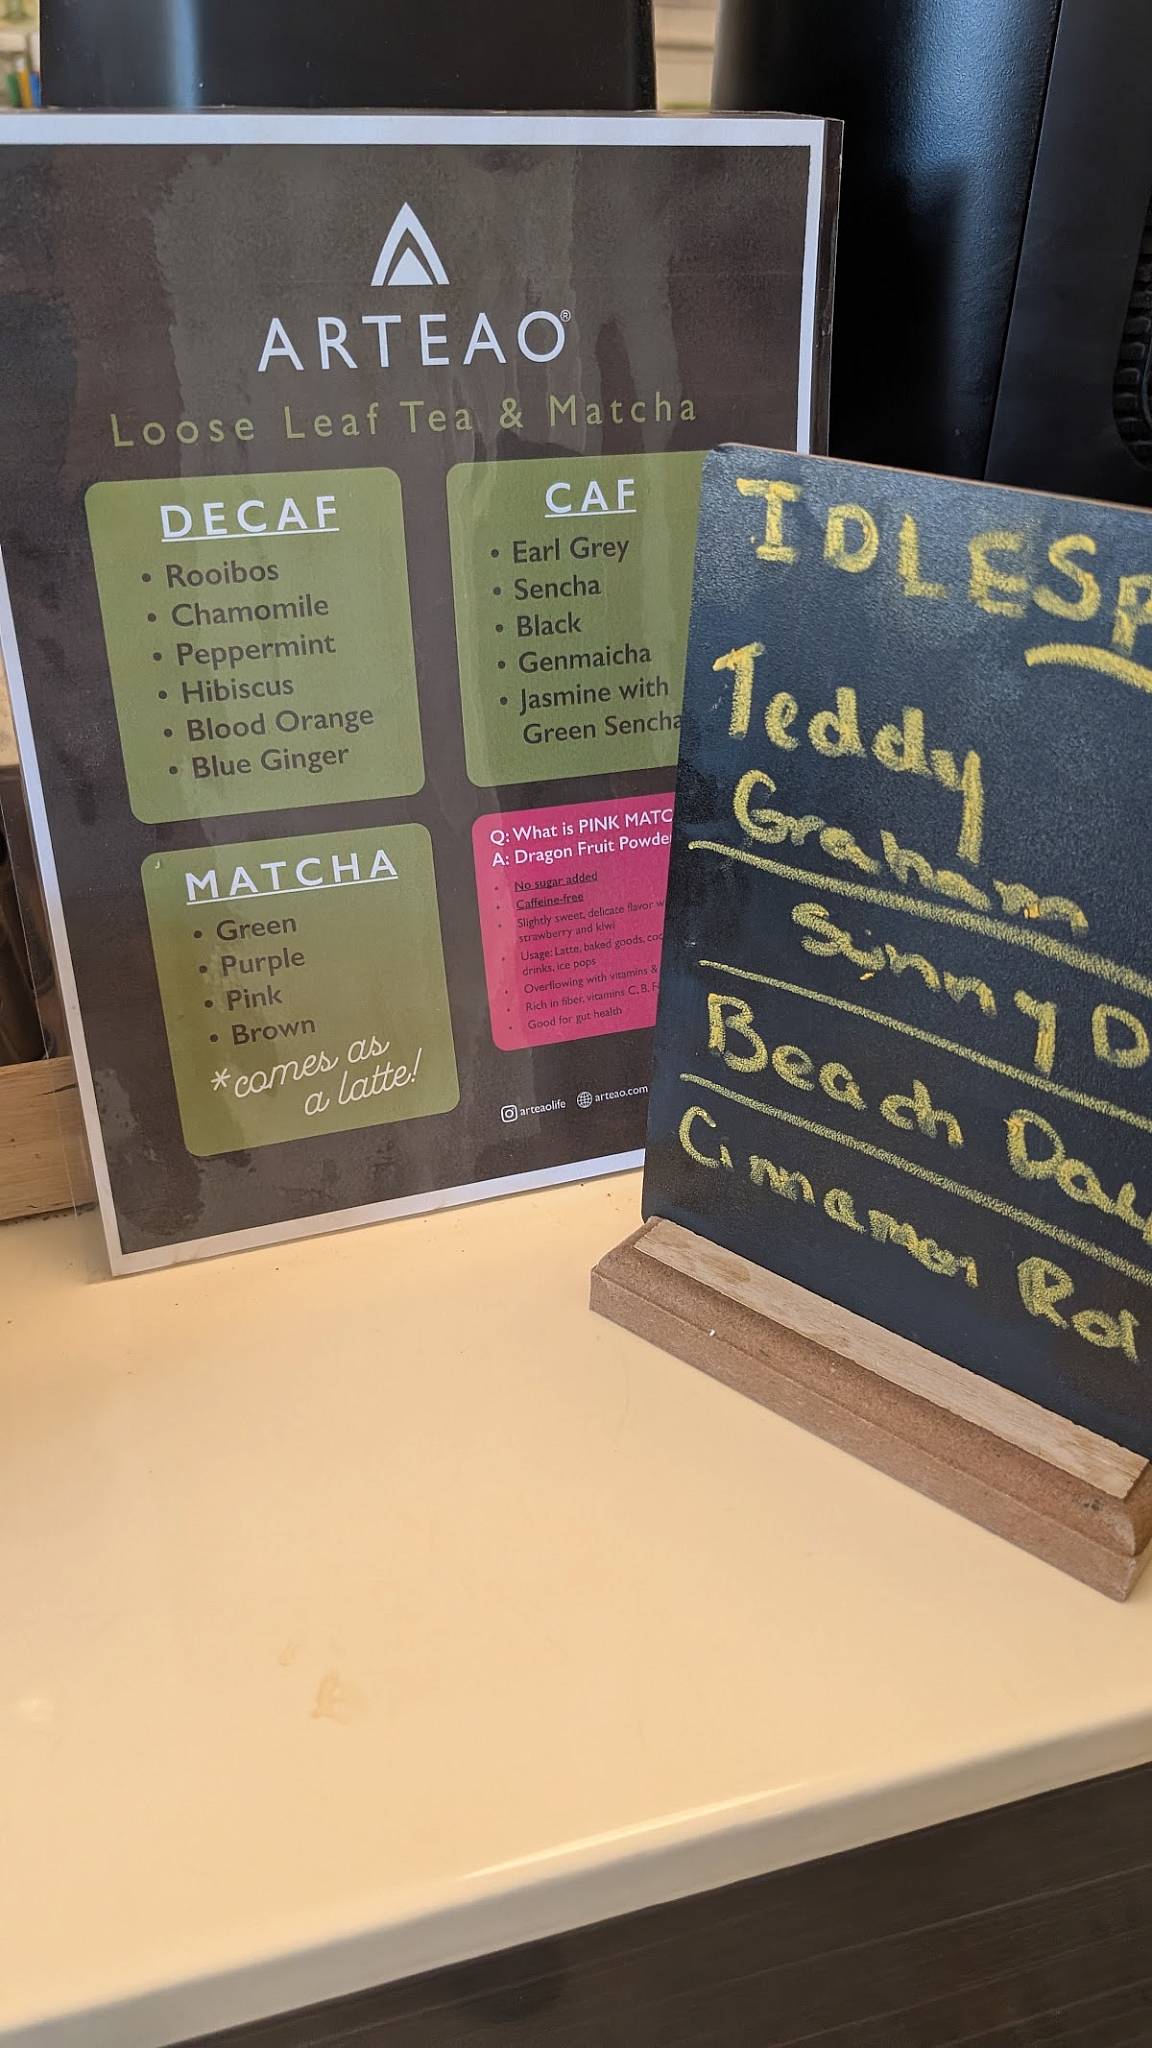 ARTEAO®
Loose Leaf Tea & Matcha
DECAF
• Rooibos
• Chamomile
• Peppermint
• Hibiscus
• Blood Orange
• Blue Ginger
CAF
• Earl Grey
• Sencha
• Black
• Genmaicha
• Jasmine with
Green Sencha
MATCHA
• Green
• Purple
• Pink
• Brown
*comes as
a latte!
Q: What is PINK MATC
A: Dragon Fruit Powde
• No sugar added
• Caffeine-free
• Slightly sweet, delicate flavor w
strawberry and kiwi
• Usage: Latte, baked goods, coc
drinks, ice pops
• Overflowing with vitamins &
• Rich in fiber, vitamins C, B,
• Good for gut health
arteaolife arteao.com
IDLESP
Teddy
Graham
Sunny D
Beach Day
Cinnamon Rol